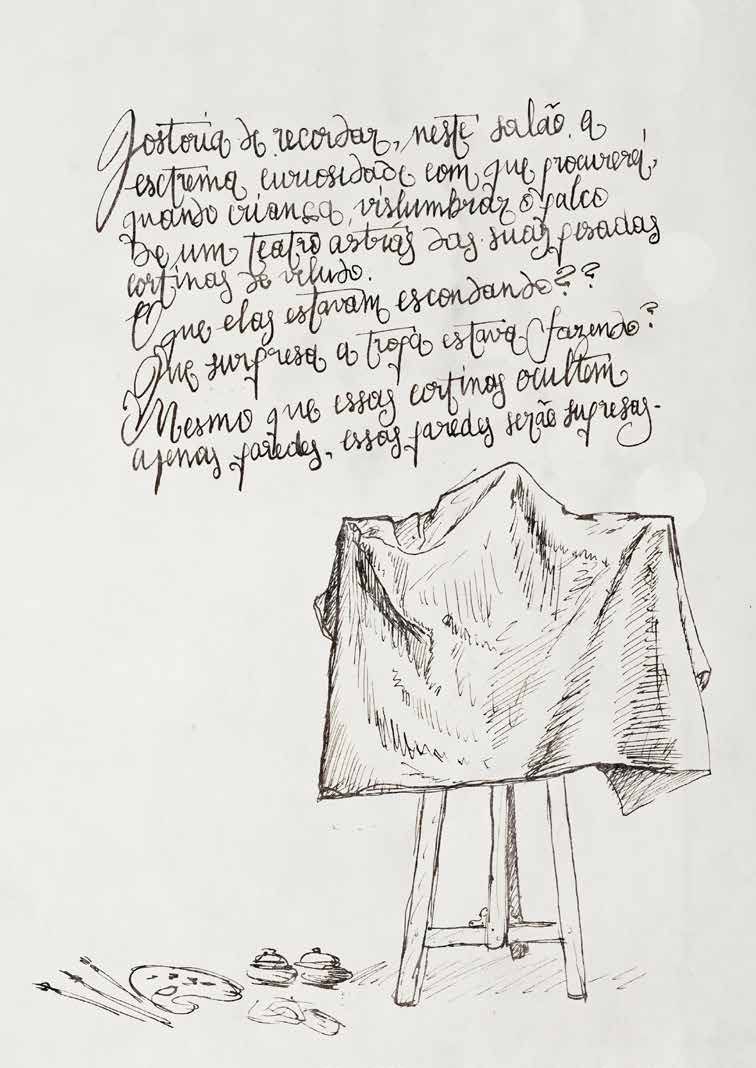 Gostoria de recordar, neste salão, a
esctrema curiosidade com que procurerei,
quando criança, vislumbrar o palco
De um teatro astrás das suas pesadas
cortinas de veludo.
O que elas estavam escondando??
Que surpresa a tropa estava fazendo?
Mesmo que essas cortinas ocultem
apenas paredes, essas paredes serão supresas.